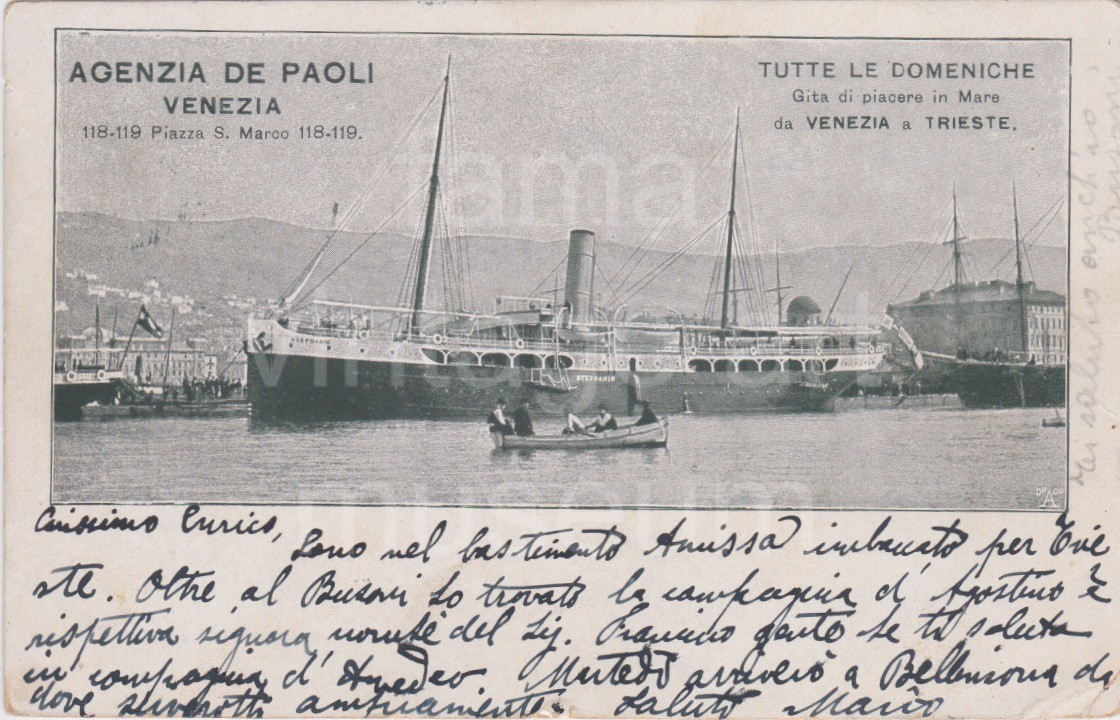 AGENZIA DE PAOLI
VENEZIA
118-119 Piazza S. Marco 118-119.
TUTTE LE DOMENICHE
Gita di piacere in Mare
da VENEZIA a TRIESTE.
STEPHANIE
STEPHANIE
Carissimo Enrico,
Sono nel bastimento Amissa imbarcato per Trie
ste. Oltre al Busoni ho trovato la compagnia d' Agostino e
rispettiva signora, nonchè del Sig. Francino quale se ti saluta
in compagnia d' Amedeo. Martedì arriverò a Bellinzona da
dove scriverotti ampiamente. Saluti Mario
Ti saluto anch'io
fama
vintage photo
museum